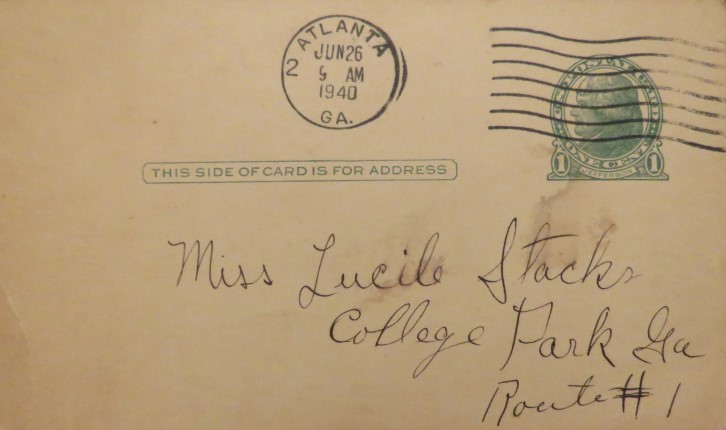 ATLANTA
JUN 26
9 AM
1940
GA.
2
THIS SIDE OF CARD IS FOR ADDRESS
ONE CENT
1 1
JEFFERSON
Miss Lucile Stacks
College Park Ga
Route # 1